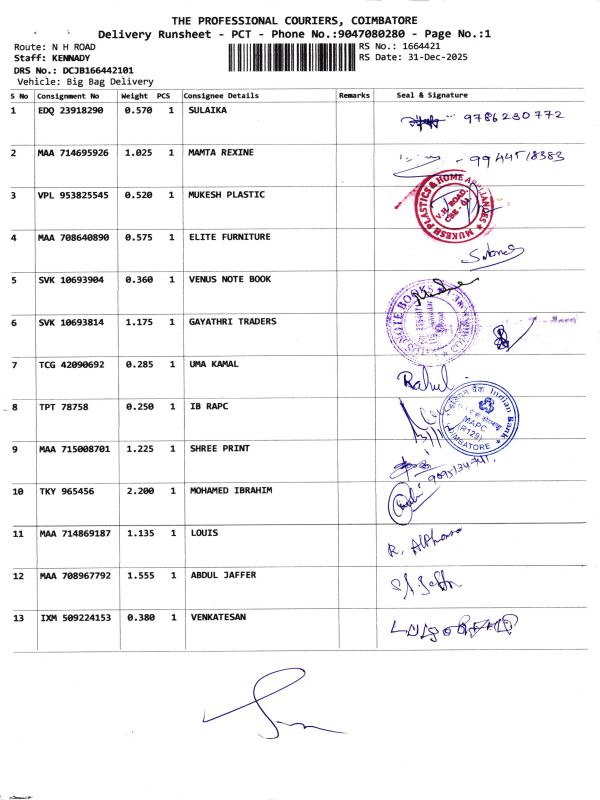 THE PROFESSIONAL COURIERS, COIMBATORE
Delivery Runsheet - PCT - Phone No.:9047080280 - Page No.:1
Route: N H ROAD RS No.: 1664421
Staff: KENNADY RS Date: 31-Dec-2025
DRS No.: DCJB166442101
Vehicle: Big Bag Delivery
S No Consignment No Weight PCS Consignee Details Remarks Seal & Signature
1 EDQ 23918290 0.570 1 SULAIKA 9786230772
2 MAA 714695926 1.025 1 MAMTA REXINE - 9944518383
3 VPL 953825545 0.520 1 MUKESH PLASTIC
MUKESH PLASTICS & HOME APPLIANCES
V.H. ROAD,
CBE - 01.
4 MAA 708640890 0.575 1 ELITE FURNITURE
5 SVK 10693904 0.360 1 VENUS NOTE BOOK
NOTE BOOKS
6 SVK 10693814 1.175 1 GAYATHRI TRADERS
7 TCG 42090692 0.285 1 UMA KAMAL Rahul
8 TPT 78758 0.250 1 IB RAPC
Indian Bank
MAPC
(R129)
COIMBATORE
9 MAA 715008701 1.225 1 SHREE PRINT
10 TKY 965456 2.200 1 MOHAMED IBRAHIM
11 MAA 714869187 1.135 1 LOUIS R. Alphonse
12 MAA 708967792 1.555 1 ABDUL JAFFER
13 IXM 509224153 0.380 1 VENKATESAN